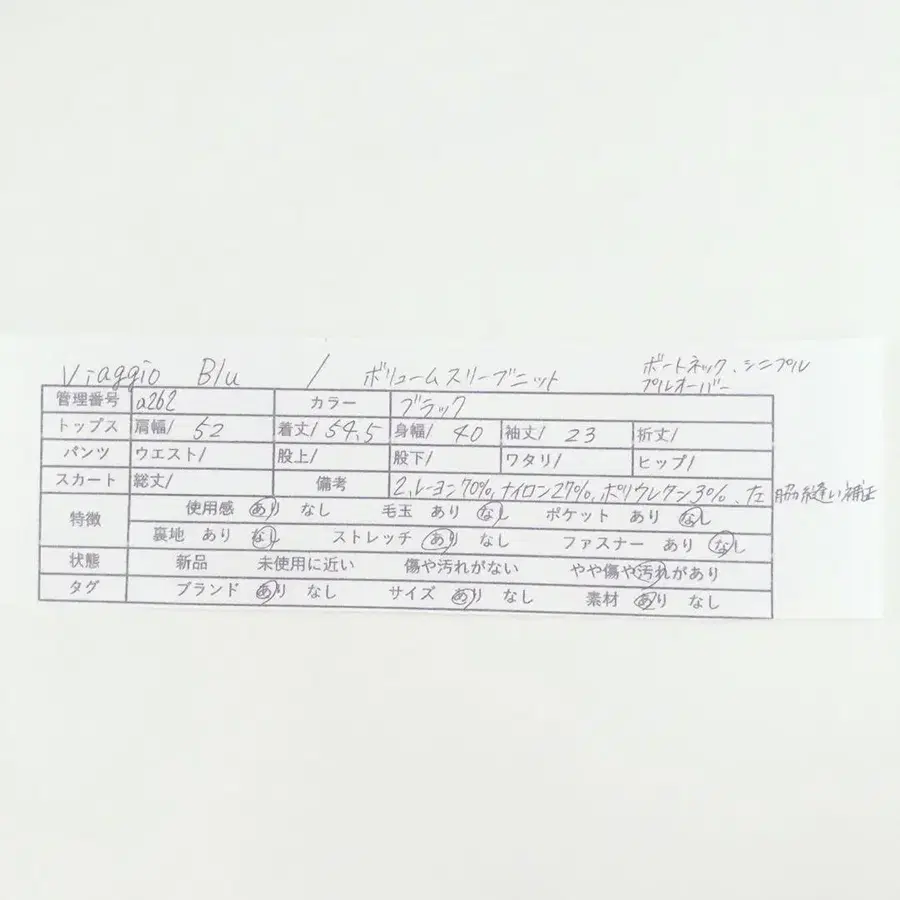 Viaggio Blu / ボリュームスリーブニット
ボートネック、シンプル
プルオーバー
管理番号 a262 カラー ブラック
トップス 肩幅/ 52 着丈/ 54.5 身幅/ 40 袖丈/ 23 裄丈/
パンツ ウエスト/ 股上/ 股下/ ワタリ/ ヒップ/
スカート 総丈/ 備考 2、レーヨン70%、ナイロン27%、ポリウレタン3%、左脇縫い補正
特徴 使用感 あり なし 毛玉 あり なし ポケット あり なし
裏地 あり なし ストレッチ あり なし ファスナー あり なし
状態 新品 未使用に近い 傷や汚れがない やや傷や汚れがあり
タグ ブランド あり なし サイズ あり なし 素材 あり なし